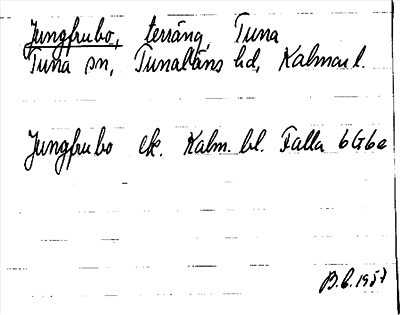 Jungfrubo, terräng, Tuna
Tuna sn, Tunaläns hd, Kalmar l.
Jungfrubo ek. Kalm. bl. Falla 6G6e
B.C. 1957